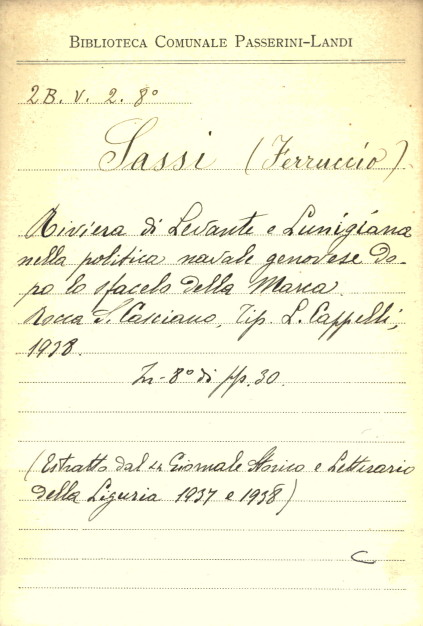 BIBLIOTECA COMUNALE PASSERINI-LANDI
2B. V. 2. 8°
Sassi (Ferruccio)
Riviera di Levante e Lunigiana
nella politica navale genovese do-
po lo sfacelo della Marca.
Rocca S. Casciano, Tip. L. Cappelli,
1938.
In-8° di pp. 30.
(Estratto dal Giornale Storico e Letterario
della Liguria 1937 e 1938)
C